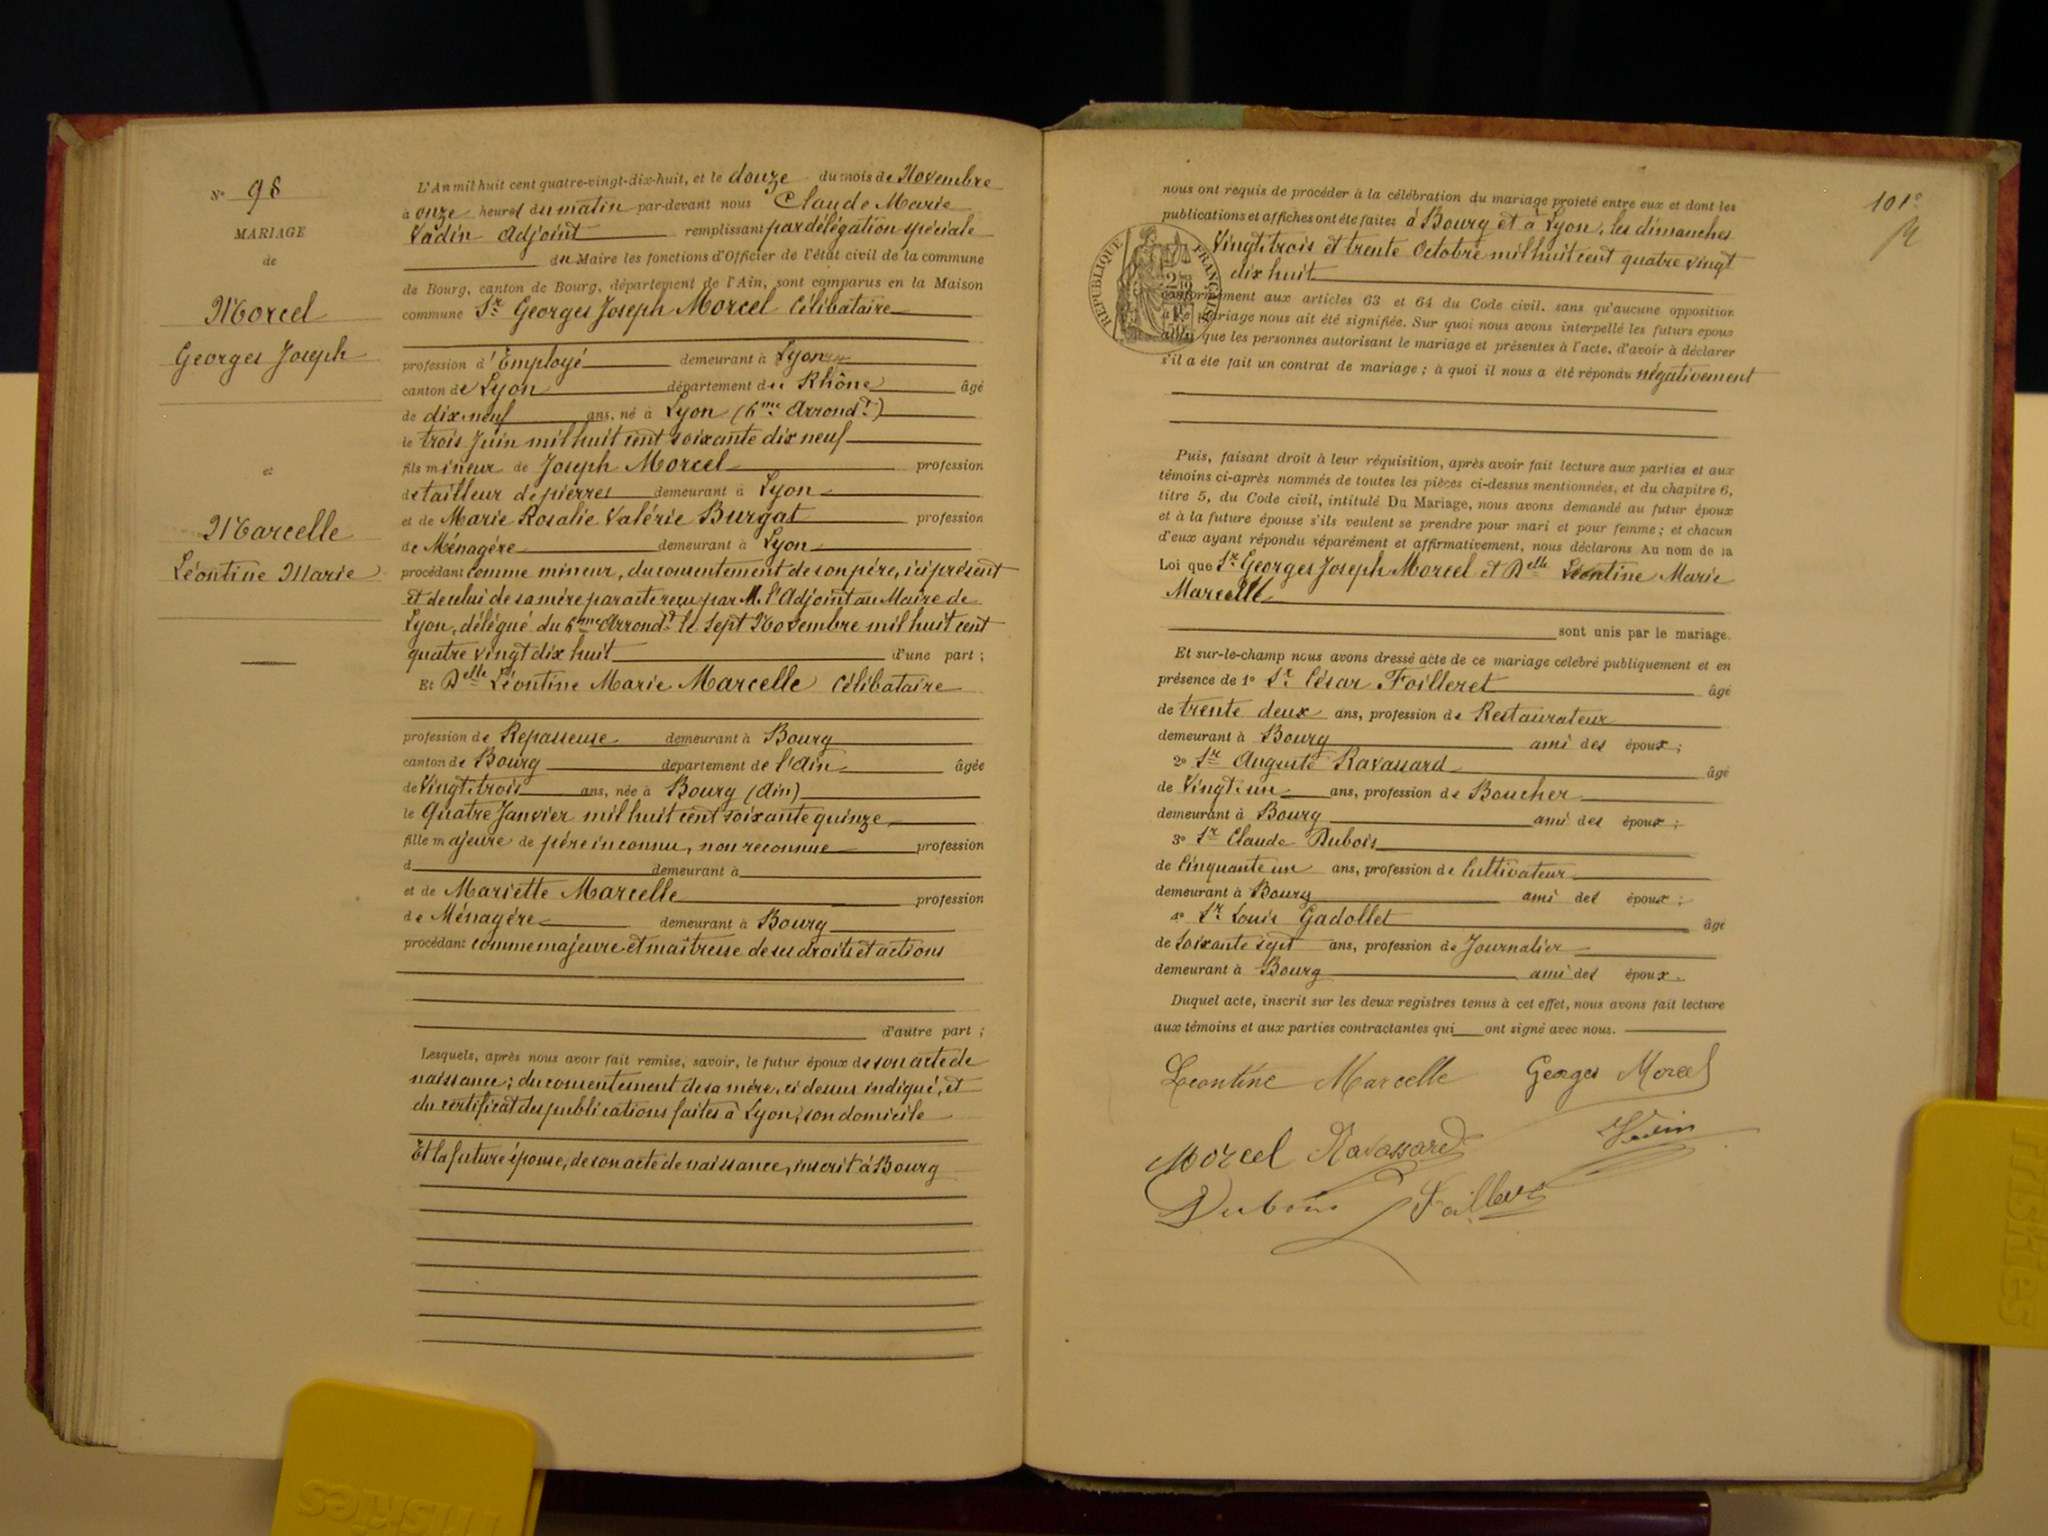 N° 98
MARIAGE
de
Morcel
Georges Joseph
et
Marcelle
Léontine Marie
L'An mil huit cent quatre-vingt-dix-huit, et le douze du mois de Novembre
à onze heures du matin par-devant nous Claude Marie
Vadin Adjoint remplissant par délégation spéciale
du Maire les fonctions d'Officier de l'état civil de la commune
de Bourg, canton de Bourg, département de l'Ain, sont comparus en la Maison
commune Sr Georges Joseph Morcel Célibataire
profession d'Employé demeurant à Lyon
canton de Lyon département du Rhône âgé
de dix-neuf ans, né à Lyon (6me Arrondt)
le trois Juin mil huit cent soixante dix neuf
fils mineur de Joseph Morcel profession
de tailleur de pierres demeurant à Lyon
et de Marie Rosalie Valérie Burgat profession
de Ménagère demeurant à Lyon
procédant comme mineur, du consentement de son père, ici présent
et de celui de sa mère par acte reçu par M. l'Adjoint au Maire de
Lyon, délégué du 6me Arrondt le sept Novembre mil huit cent
quatre vingt dix huit d'une part ;
Et Delle Léontine Marie Marcelle Célibataire
profession de Repasseuse demeurant à Bourg
canton de Bourg département de l'Ain âgée
de Vingt-trois ans, née à Bourg (Ain)
le Quatre Janvier mil huit cent soixante quinze
fille majeure de père inconnu, non reconnue profession
d demeurant à
et de Mariette Marcelle profession
de Ménagère demeurant à Bourg
procédant comme majeure et maîtresse de ses droits et actions
d'autre part ;
Lesquels, après nous avoir fait remise, savoir, le futur époux de son acte de
naissance ; du consentement de sa mère, ci dessus indiqué, et
du certificat des publications faites à Lyon, son domicile
Et la future épouse, de son acte de naissance, inscrit à Bourg
101e
nous ont requis de procéder à la célébration du mariage projeté entre eux et dont les
publications et affiches ont été faites à Bourg et à Lyon, les dimanches
Vingt-trois et trente Octobre mil huit cent quatre vingt
dix huit
RÉPUBLIQUE FRANÇAISE
conformément aux articles 63 et 64 du Code civil, sans qu'aucune opposition
mariage nous ait été signifiée. Sur quoi nous avons interpellé les futurs époux
que les personnes autorisant le mariage et présentes à l'acte, d'avoir à déclarer
s'il a été fait un contrat de mariage ; à quoi il nous a été répondu négativement
Puis, faisant droit à leur réquisition, après avoir fait lecture aux parties et aux
témoins ci-après nommés de toutes les pièces ci-dessus mentionnées, et du chapitre 6,
titre 5, du Code civil, intitulé Du Mariage, nous avons demandé au futur époux
et à la future épouse s'ils veulent se prendre pour mari et pour femme ; et chacun
d'eux ayant répondu séparément et affirmativement, nous déclarons Au nom de la
Loi que Sr Georges Joseph Morcel et Delle Léontine Marie
Marcelle
sont unis par le mariage.
Et sur-le-champ nous avons dressé acte de ce mariage célébré publiquement et en
présence de 1° Sr César Foilleret âgé
de trente deux ans, profession de Restaurateur
demeurant à Bourg ami des époux ;
2° Sr Auguste Ravassard âgé
de Vingt-un ans, profession de Boucher
demeurant à Bourg ami des époux ;
3° Sr Claude Dubois
de Cinquante un ans, profession de Cultivateur
demeurant à Bourg ami des époux ;
4° Sr Louis Gadollet âgé
de soixante sept ans, profession de Journalier
demeurant à Bourg ami des époux.
Duquel acte, inscrit sur les deux registres tenus à cet effet, nous avons fait lecture
aux témoins et aux parties contractantes qui ont signé avec nous.
Léontine Marcelle Georges Morcel
Morcel Ravassard Vadin
Dubois Foilleret